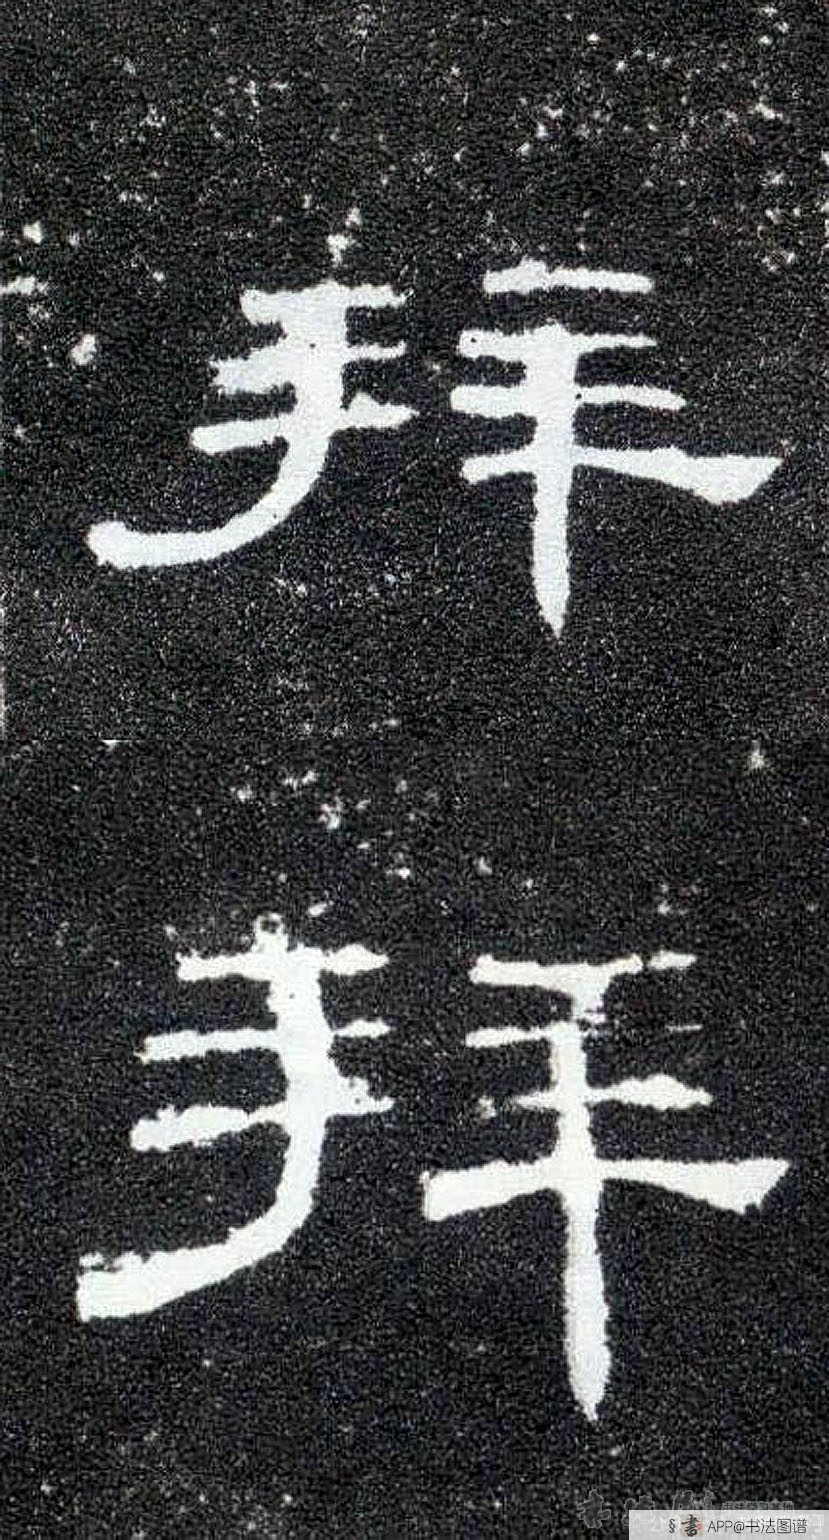 拜
拜
§書 APP@书法图谱